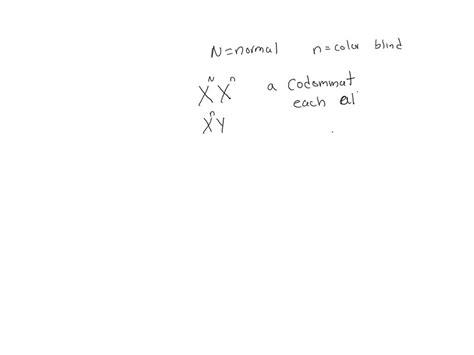 N=normal n=color blind
X^N X^n a Codominat
each al
X^n Y